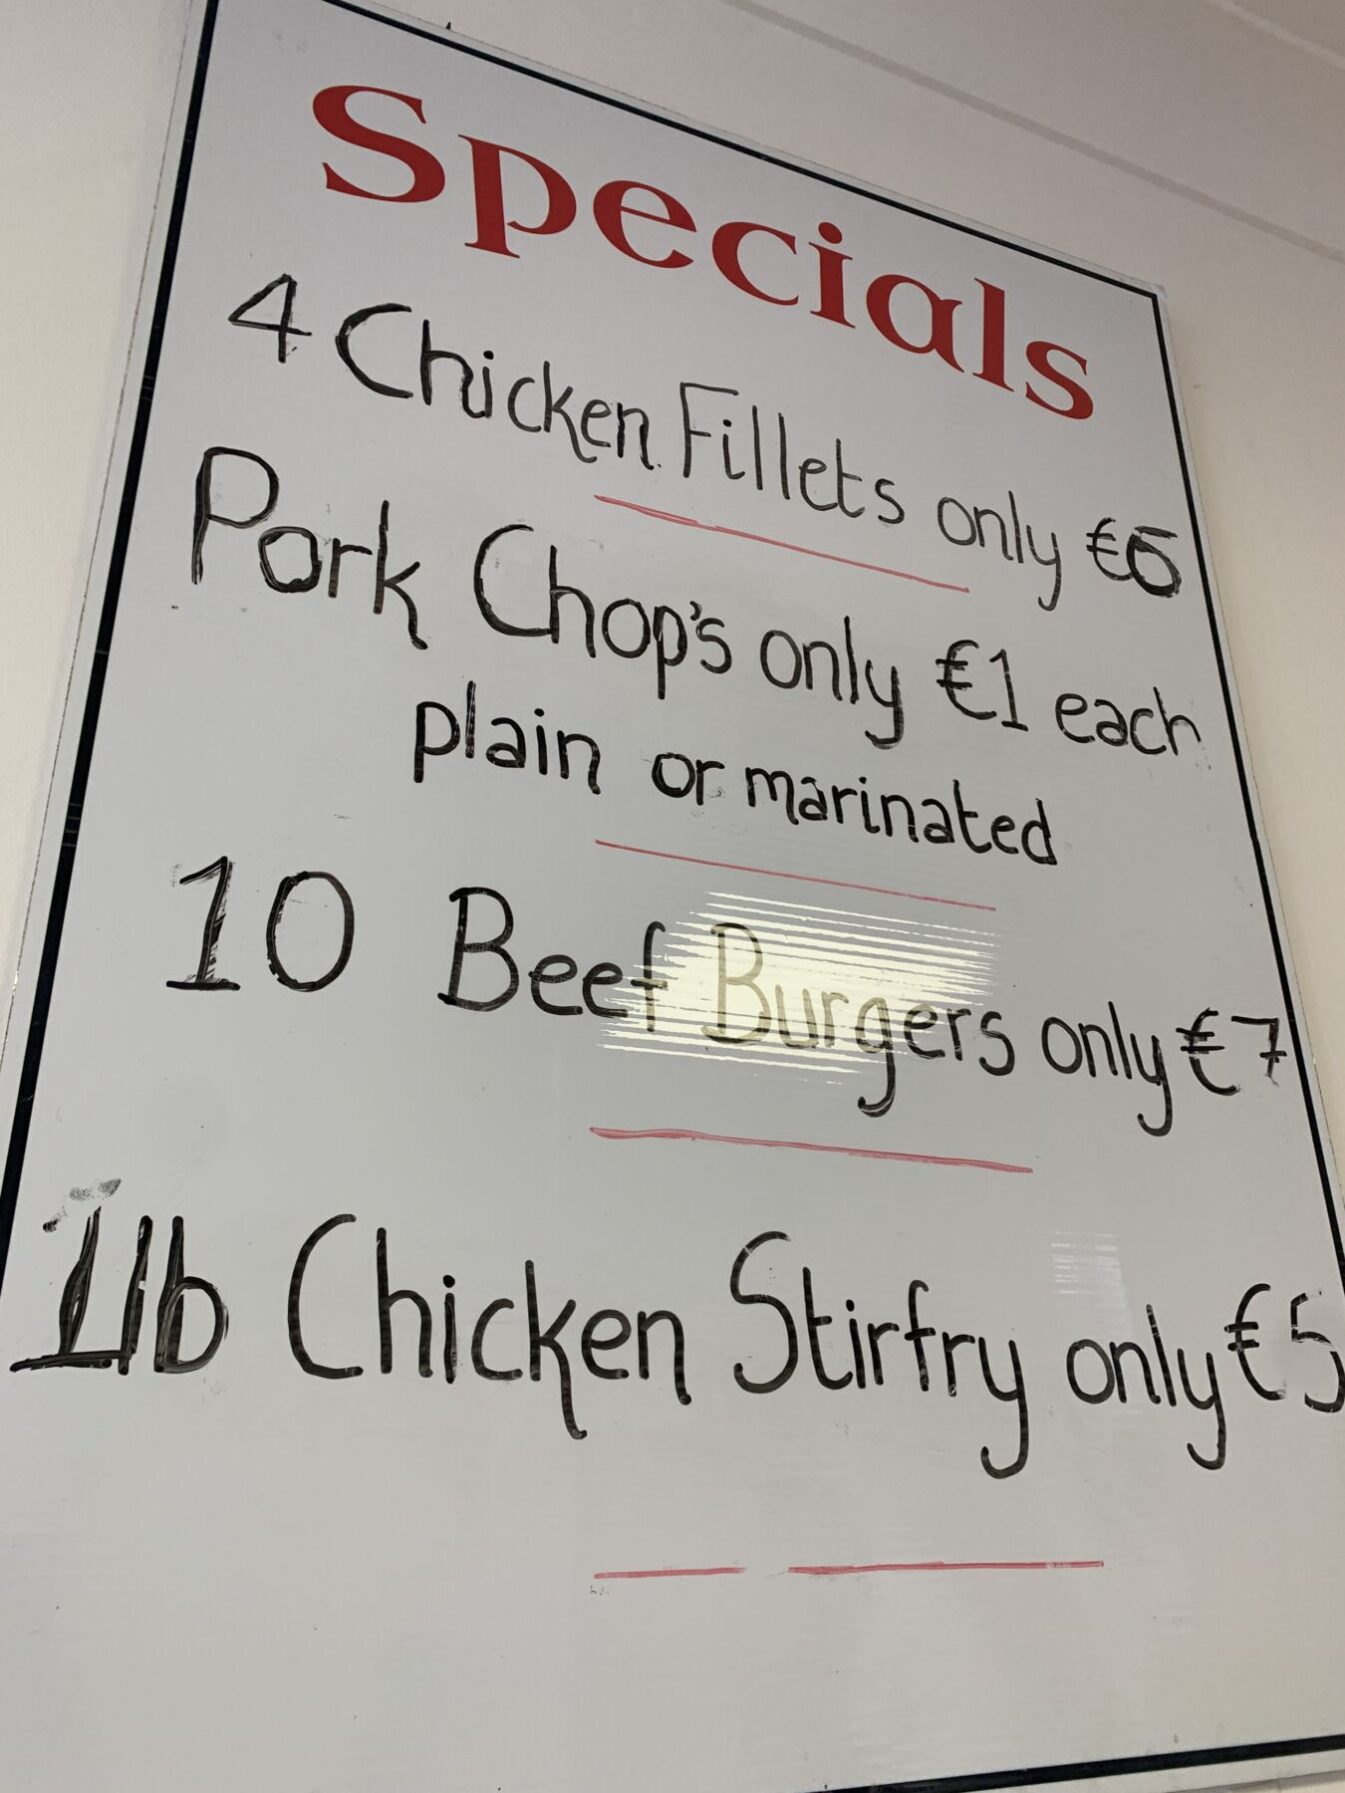 Specials
4 Chicken Fillets only €6
Pork Chop's only €1 each
plain or marinated
10 Beef Burgers only €7
1lb Chicken Stirfry only €5